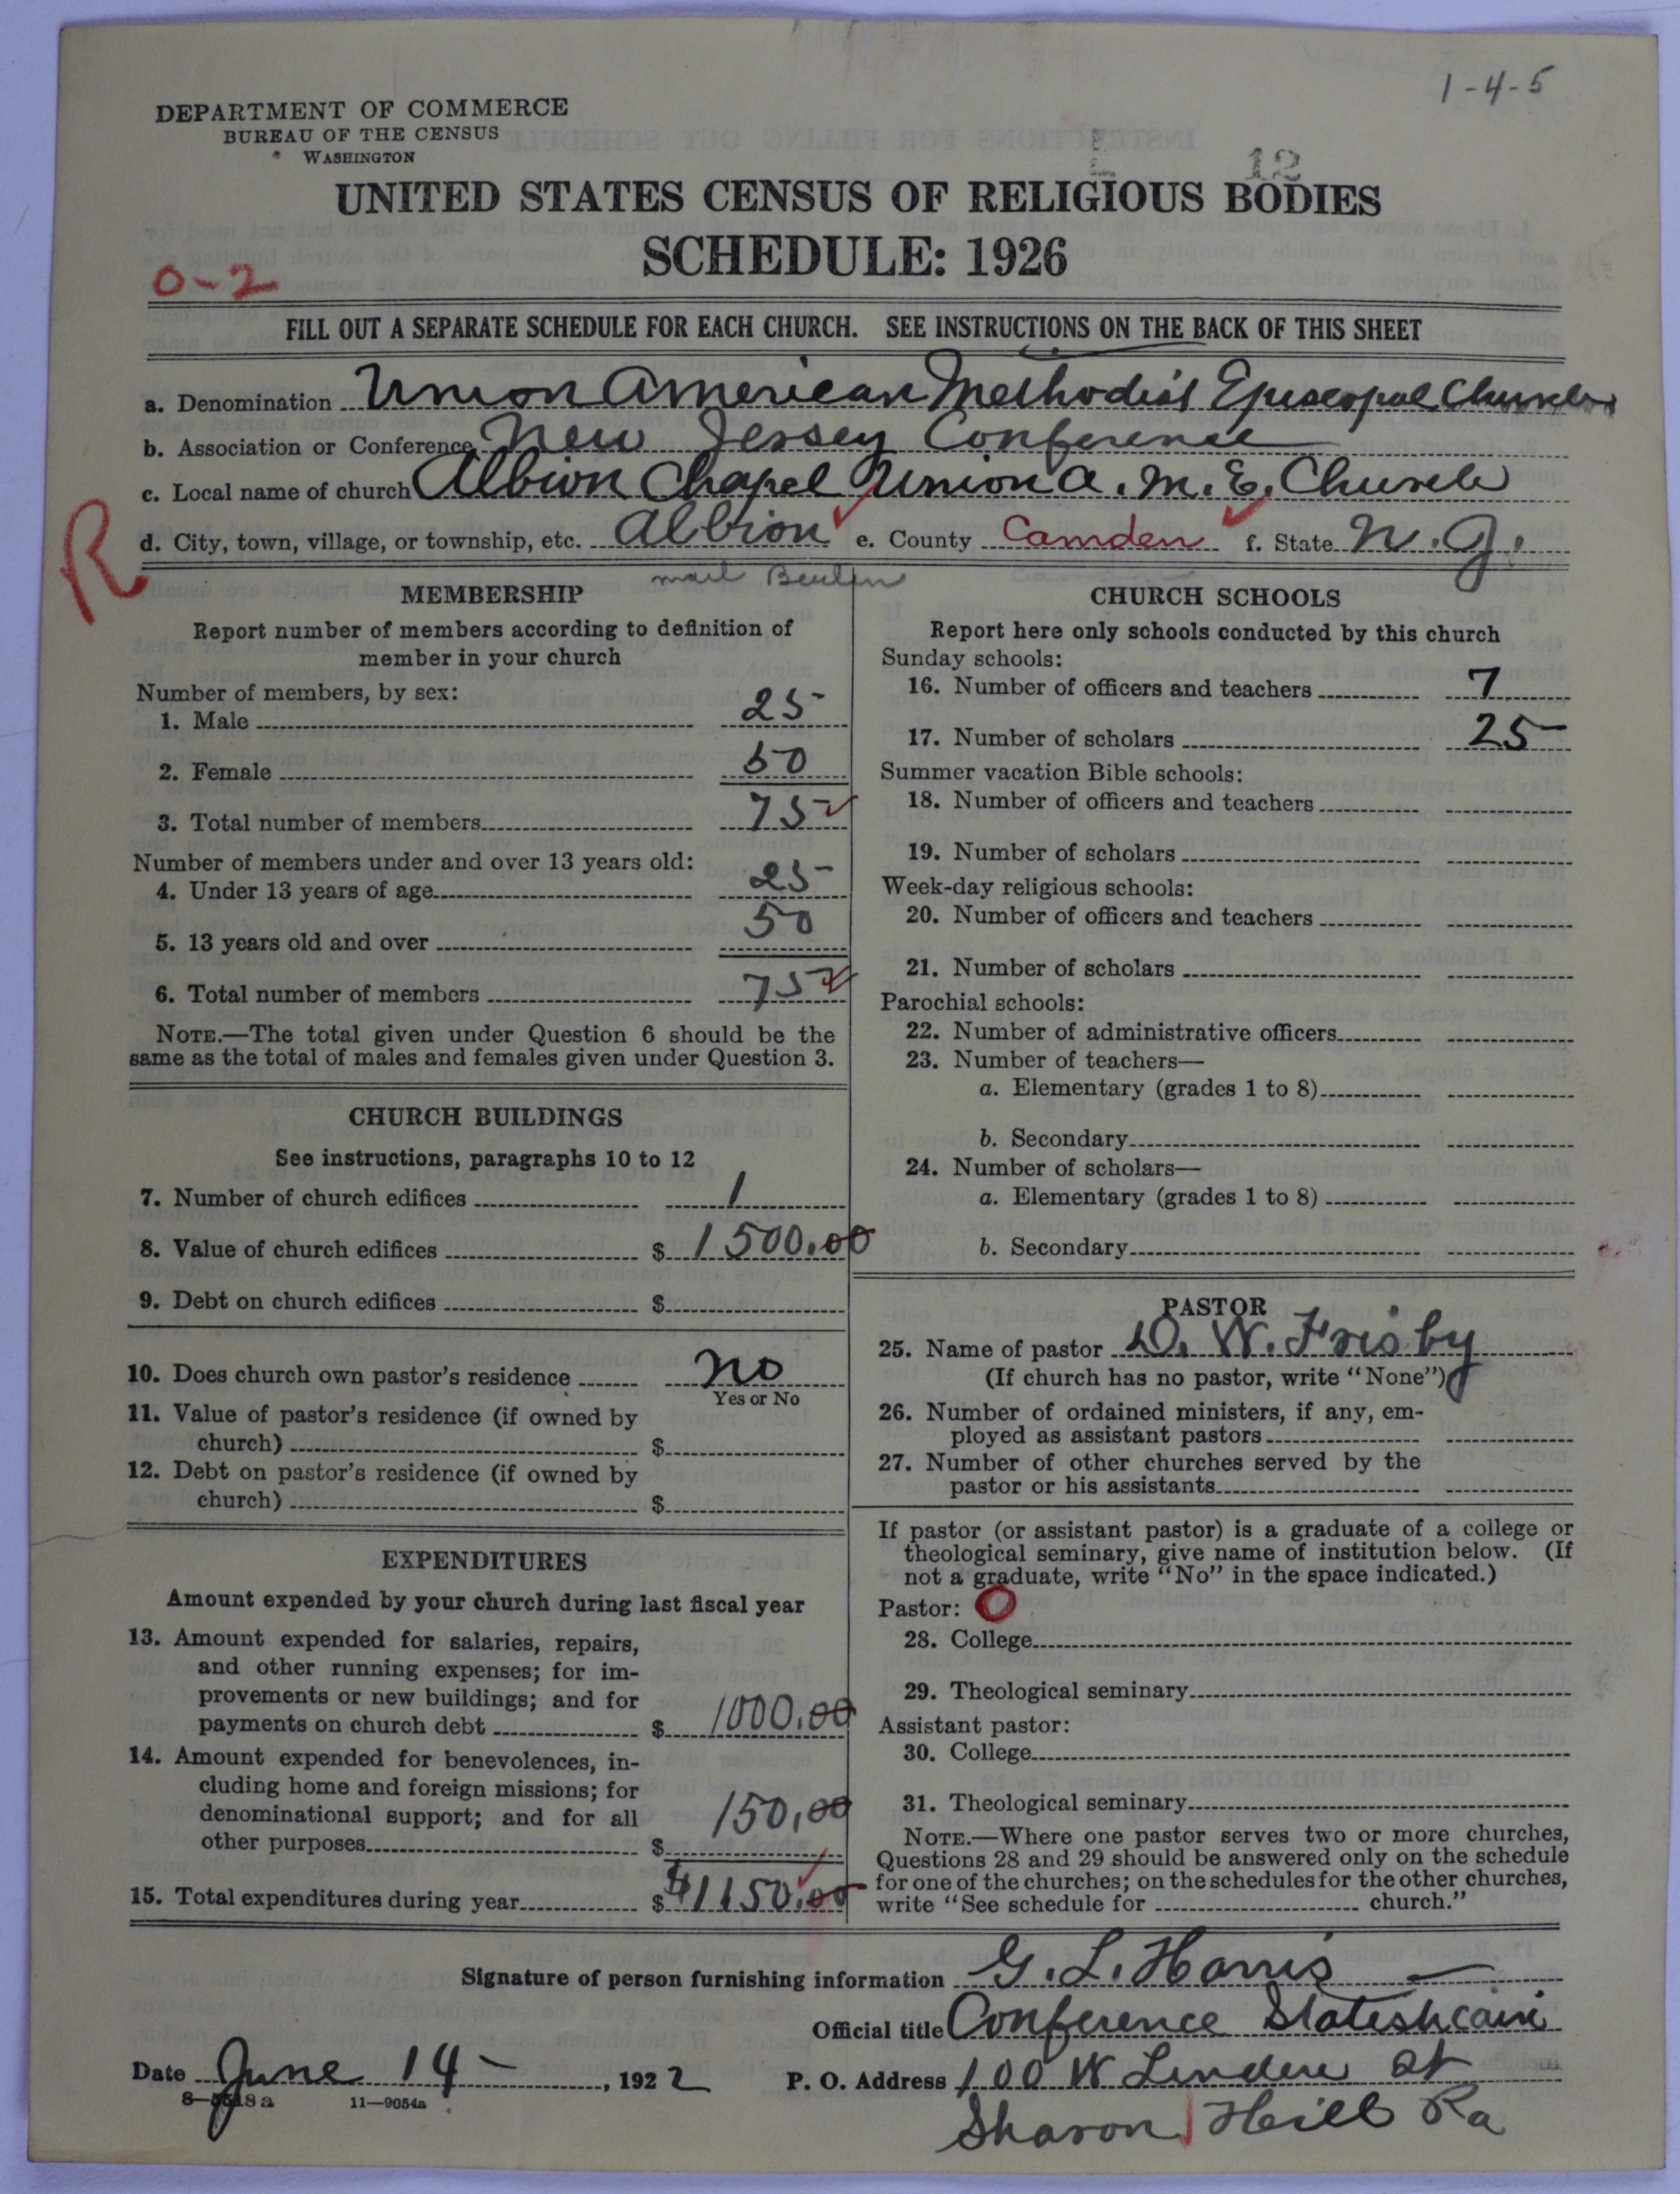 1-4-5
DEPARTMENT OF COMMERCE
BUREAU OF THE CENSUS
WASHINGTON
12
UNITED STATES CENSUS OF RELIGIOUS BODIES
SCHEDULE: 1926
0-2
FILL OUT A SEPARATE SCHEDULE FOR EACH CHURCH. SEE INSTRUCTIONS ON THE BACK OF THIS SHEET
a. Denomination Union American Methodist Episcopal Church
b. Association or Conference New Jersey Conference
c. Local name of church Albion Chapel Union A. M. E. Church
R
d. City, town, village, or township, etc. Albion e. County Camden f. State N. J.
mail
MEMBERSHIP
Report number of members according to definition of
member in your church
Number of members, by sex:
1. Male 25
2. Female 50
3. Total number of members 75
Number of members under and over 13 years old:
4. Under 13 years of age 25
5. 13 years old and over 50
6. Total number of members 75
NOTE.—The total given under Question 6 should be the
same as the total of males and females given under Question 3.
CHURCH BUILDINGS
See instructions, paragraphs 10 to 12
7. Number of church edifices 1
8. Value of church edifices $ 1500.00
9. Debt on church edifices $
10. Does church own pastor's residence No
Yes or No
11. Value of pastor's residence (if owned by
church) $
12. Debt on pastor's residence (if owned by
church) $
EXPENDITURES
Amount expended by your church during last fiscal year
13. Amount expended for salaries, repairs,
and other running expenses; for im-
provements or new buildings; and for
payments on church debt $ 1000.00
14. Amount expended for benevolences, in-
cluding home and foreign missions; for
denominational support; and for all
other purposes $ 150.00
15. Total expenditures during year $ $1150.00
CHURCH SCHOOLS
Report here only schools conducted by this church
Sunday schools:
16. Number of officers and teachers 7
17. Number of scholars 25
Summer vacation Bible schools:
18. Number of officers and teachers
19. Number of scholars
Week-day religious schools:
20. Number of officers and teachers
21. Number of scholars
Parochial schools:
22. Number of administrative officers
23. Number of teachers—
a. Elementary (grades 1 to 8)
b. Secondary
24. Number of scholars—
a. Elementary (grades 1 to 8)
b. Secondary
PASTOR
25. Name of pastor D. W. Frisby
(If church has no pastor, write "None")
26. Number of ordained ministers, if any, em-
ployed as assistant pastors
27. Number of other churches served by the
pastor or his assistants
If pastor (or assistant pastor) is a graduate of a college or
theological seminary, give name of institution below. (If
not a graduate, write "No" in the space indicated.)
Pastor: O
28. College
29. Theological seminary
Assistant pastor:
30. College
31. Theological seminary
NOTE.—Where one pastor serves two or more churches,
Questions 28 and 29 should be answered only on the schedule
for one of the churches; on the schedules for the other churches,
write "See schedule for church."
Signature of person furnishing information G. L. Harris
Official title Conference
Date June 14, 1922
P. O. Address 100 W Linden St
Sharon Hill Pa
8—5518a 11—9054a